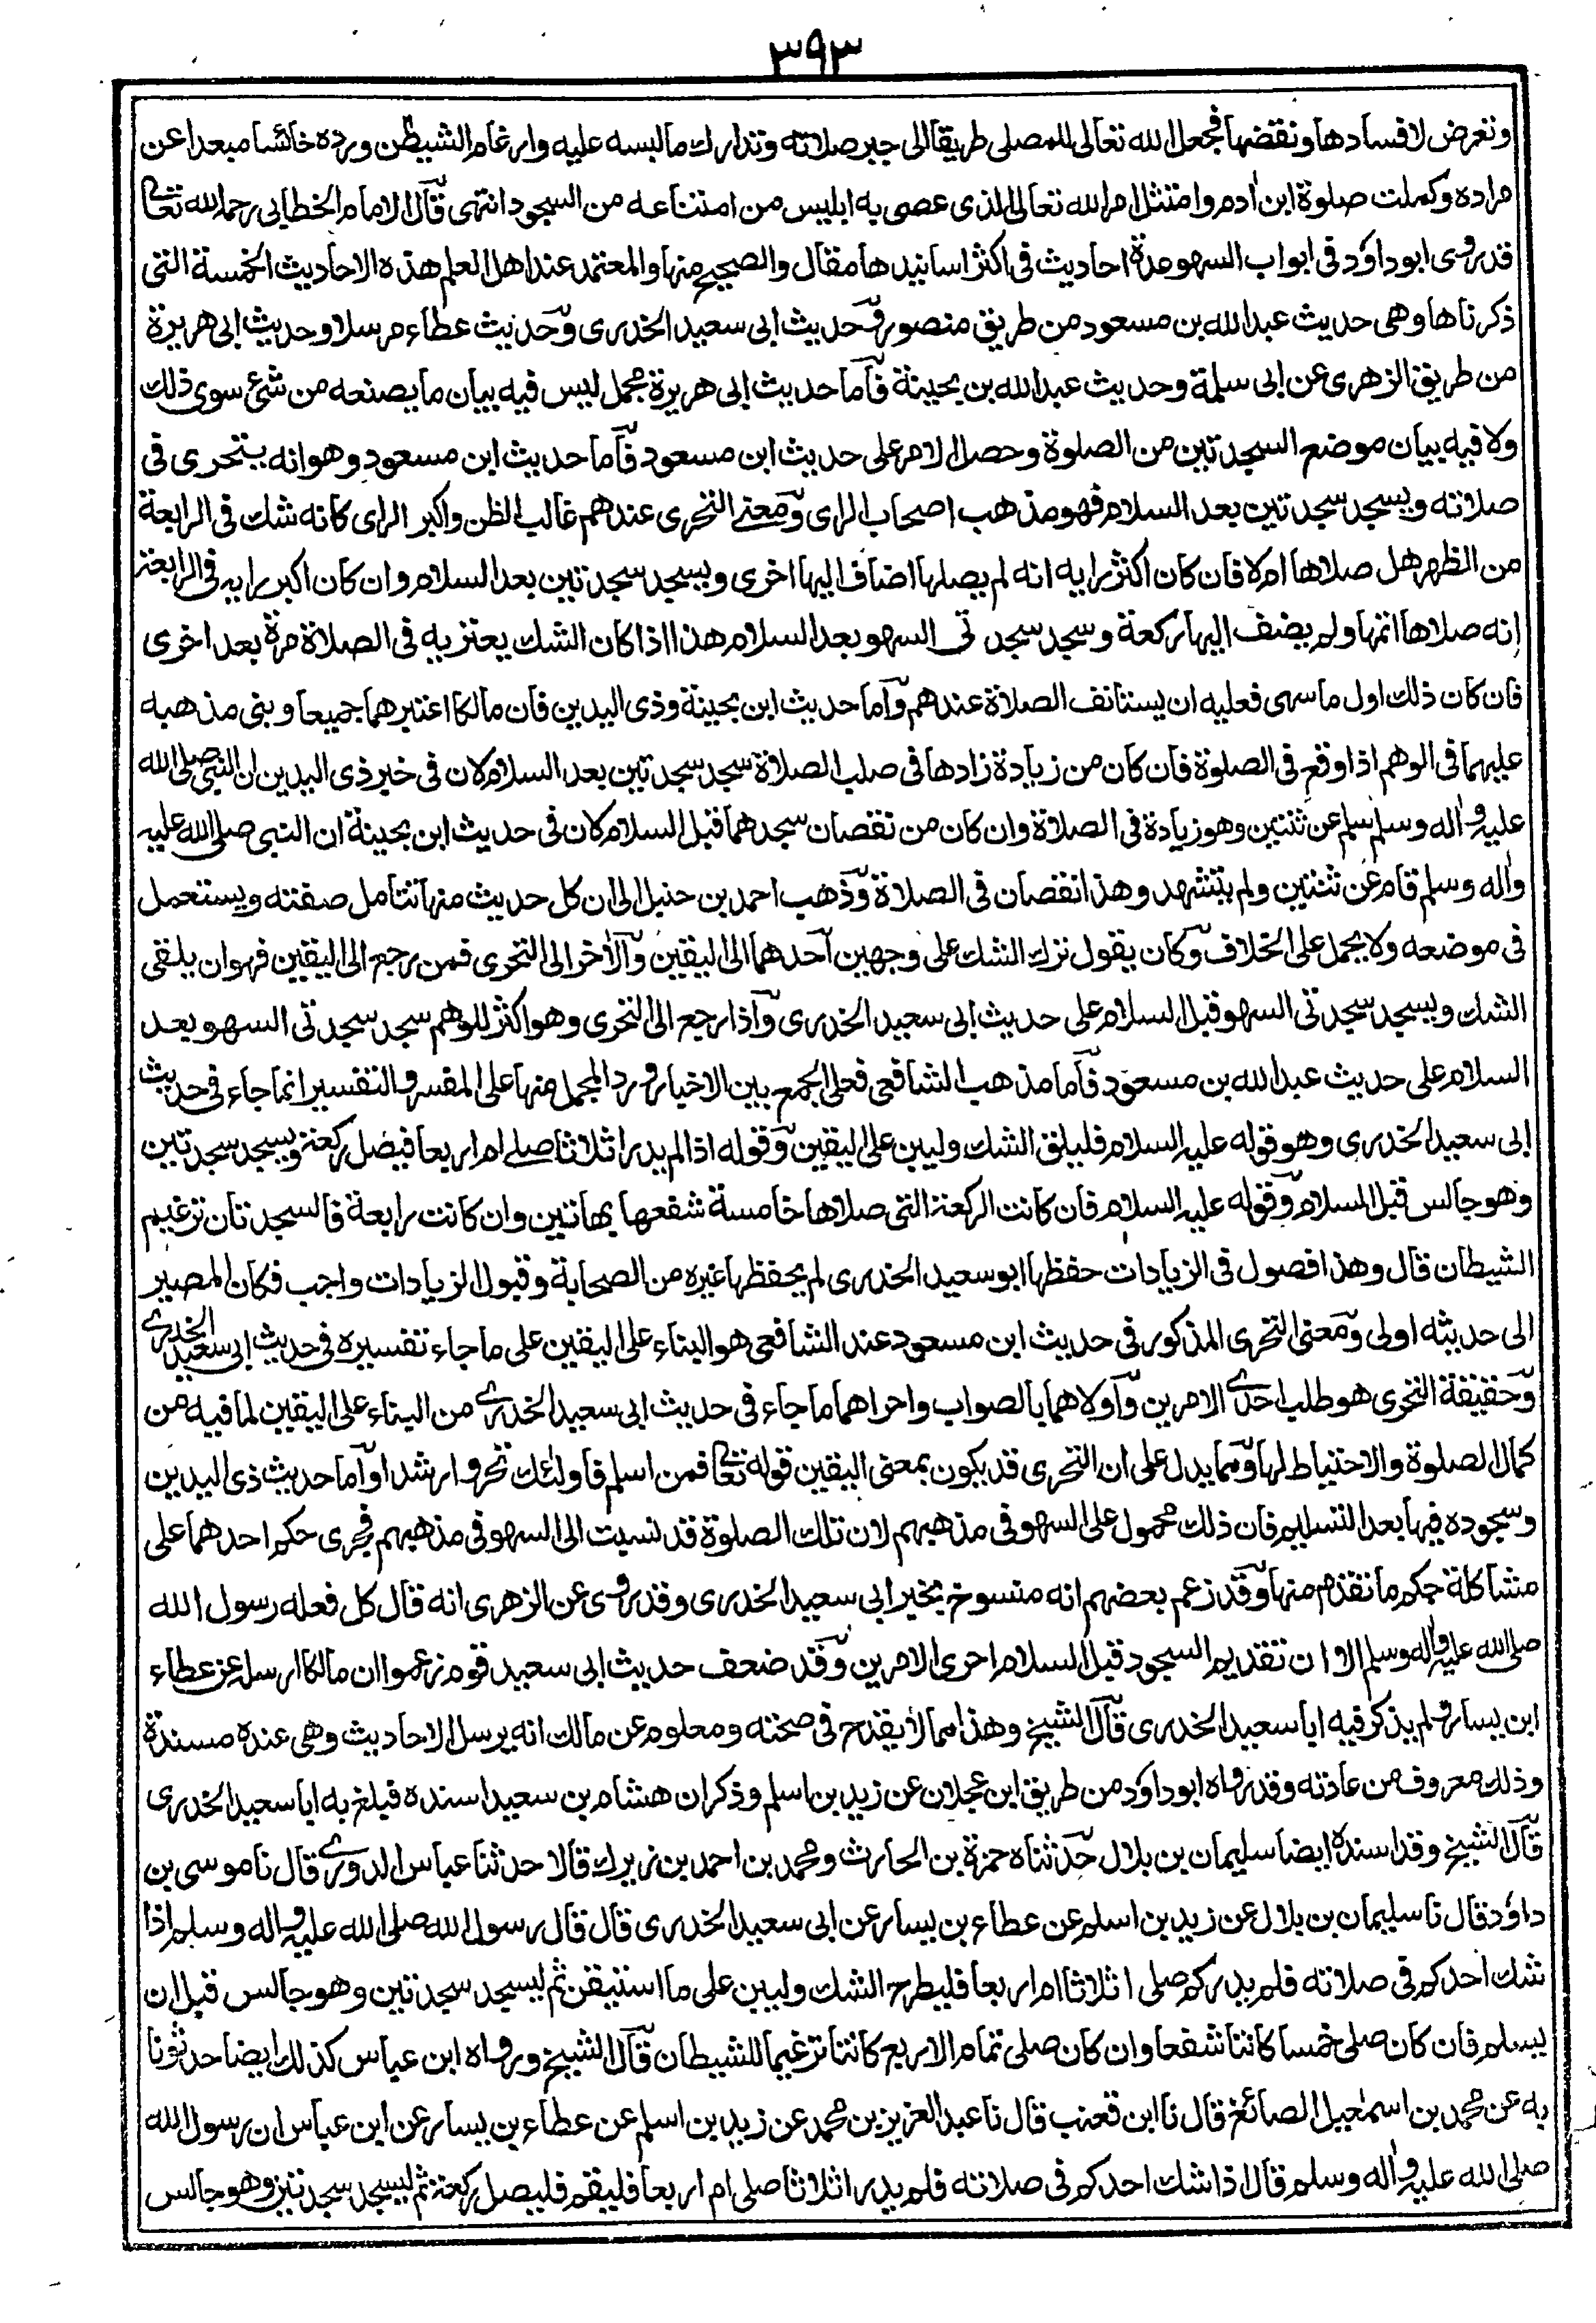 ٣٩٣
وتعرض لافسادها ونقضها فجعل الله تعالى للمصلى طريقا الى جبر صلاته وتدارك مالبسه عليه وارغام الشيطن ورده خاسئا مبعدا عن
مراده وكملت صلوة ابن ادم وامتثل امر الله تعالى الذى عصى به ابليس من امتناعه من السجود انتهى قال الامام الخطابى رحمه الله تعالى
قد روى ابو داؤد فى ابواب السهو عدة احاديث فى اكثر اسانيدها مقال والصحيح منها والمعتمد عند اهل العلم هذه الاحاديث الخمسة التى
ذكرناها وهى حديث عبد الله بن مسعود من طريق منصور وحديث ابى سعيد الخدرى وحديث عطاء مرسلا وحديث ابى هريرة
من طريق الزهرى عن ابى سلمة وحديث عبد الله بن بحينة فاما حديث ابى هريرة مجمل ليس فيه بيان ما يصنعه من شئ سوى ذلك
ولا فيه بيان موضع السجدتين من الصلوة وحصل الامر على حديث ابن مسعود فاما حديث ابن مسعود وهو انه يتحرى فى
صلاته ويسجد سجدتين بعد السلام فهو مذهب اصحاب الراى ومعنى التحرى عندهم غالب الظن واكبر الراى كانه شك فى الرابعة
من الظهر هل صلاها ام لا فان كان اكثر رايه انه لم يصلها اضاف اليها اخرى ويسجد سجدتين بعد السلام وان كان اكبر رايه فى الرابعة
انه صلاها اتمها ولم يضف اليها ركعة وسجد سجدتى السهو بعد السلام هذا اذا كان الشك يعتريه فى الصلاة مرة بعد اخرى
فان كان ذلك اول ما سهى فعليه ان يستانف الصلاة عندهم واما حديث ابن بحينة وذى اليدين فان مالكا اعتبرهما جميعا وبنى مذهبه
عليهما فى الوهم اذا وقع فى الصلوة فان كان من زيادة زادها فى صلب الصلاة سجد سجدتين بعد السلام لان فى خبر ذى اليدين ان النبى صلى الله
عليه واله وسلم سلم عن ثنتين وهو زيادة فى الصلاة وان كان من نقصان سجدهما قبل السلام كان فى حديث ابن بحينة ان النبى صلى الله عليه
واله وسلم قام عن ثنتين ولم يتشهد وهذا نقصان فى الصلاة وذهب احمد بن حنبل الى ان كل حديث منها تتامل صفته ويستعمل
فى موضعه ولا يحمل على الخلاف وكان يقول ترك الشك على وجهين احدهما الى اليقين والاخر الى التحرى فمن رجع الى اليقين فهو ان يلقى
الشك ويسجد سجدتى السهو قبل السلام على حديث ابى سعيد الخدرى واذا رجع الى التحرى وهو اكثر للوهم سجد سجدتى السهو بعد
السلام على حديث عبد الله بن مسعود فاما مذهب الشافعى فعلى الجمع بين الاخبار ورد المجمل منها على المفسر والتفسير انما جاء فى حديث
ابى سعيد الخدرى وهو قوله عليه السلام فليلق الشك وليبن على اليقين وقوله اذا لم يدر اثلاثا صلى ام اربعا فيصل ركعة ويسجد سجدتين
وهو جالس قبل السلام وقوله عليه السلام فان كانت الركعة التى صلاها خامسة شفعها بهاتين وان كانت رابعة فالسجدتان ترغيم
الشيطان قال وهذا فصول فى الزيادات حفظها ابو سعيد الخدرى لم يحفظها غيره من الصحابة وقبول الزيادات واجب فكان المصير
الى حديثه اولى ومعنى التحرى المذكور فى حديث ابن مسعود عند الشافعى هو البناء على اليقين على ما جاء تفسيره فى حديث ابى سعيد الخدرى
وحقيقة التحرى هو طلب احدى الامرين واولاهما بالصواب واحراهما ما جاء فى حديث ابى سعيد الخدرى من البناء على اليقين لما فيه من
كمال الصلوة والاحتياط لها ومما يدل على ان التحرى قد يكون بمعنى اليقين قوله تعالى فمن اسلم فاولئك تحروا رشدا واما حديث ذى اليدين
وسجوده فيها بعد التسليم فان ذلك محمول على السهو فى مذهبهم لان تلك الصلوة قد نسبت الى السهو فى مذهبهم فجرى حكم احدهما على
مشاكلة حكم ما تقدم منها وقد زعم بعضهم انه منسوخ بخبر ابى سعيد الخدرى وقد روى عن الزهرى انه قال كل فعله رسول الله
صلى الله عليه واله وسلم الا ان تقديم السجود قبل السلام احرى الامرين وقد ضعف حديث ابى سعيد قوم زعموا ان مالكا ارسل عن عطاء
ابن يسار ولم يذكر فيه ابا سعيد الخدرى قال الشيخ وهذا مما لا يقدح فى صحته ومعلوم عن مالك انه يرسل الاحاديث وهى عنده مسندة
وذلك معروف من عادته وقد رواه ابو داؤد من طريق ابن عجلان عن زيد بن اسلم وذكر ان هشام بن سعيد اسنده فبلغ به ابا سعيد الخدرى
قال الشيخ وقد اسنده ايضا سليمان بن بلال حدثناه حمزة بن الحارث ومحمد بن احمد بن زيرك قالا حدثنا عباس الدورى قال نا موسى بن
داؤد قال نا سليمان بن بلال عن زيد بن اسلم عن عطاء بن يسار عن ابى سعيد الخدرى قال قال رسول الله صلى الله عليه واله وسلم اذا
شك احدكم فى صلاته فلم يدر كم صلى اثلاثا ام اربعا فليطرح الشك وليبن على ما استيقن ثم ليسجد سجدتين وهو جالس قبل ان
يسلم فان كان صلى خمسا كانتا شفعا وان كان صلى تمام الاربع كانتا ترغيما للشيطان قال الشيخ ورواه ابن عباس كذلك ايضا حدثونا
به عن محمد بن اسمعيل الصائغ قال نا ابن قعنب قال نا عبد العزيز بن محمد عن زيد بن اسلم عن عطاء بن يسار عن ابن عباس ان رسول الله
صلى الله عليه واله وسلم قال اذا شك احدكم فى صلاته فلم يدر اثلاثا صلى ام اربعا فليقم فليصل ركعة ثم ليسجد سجدتين وهو جالس